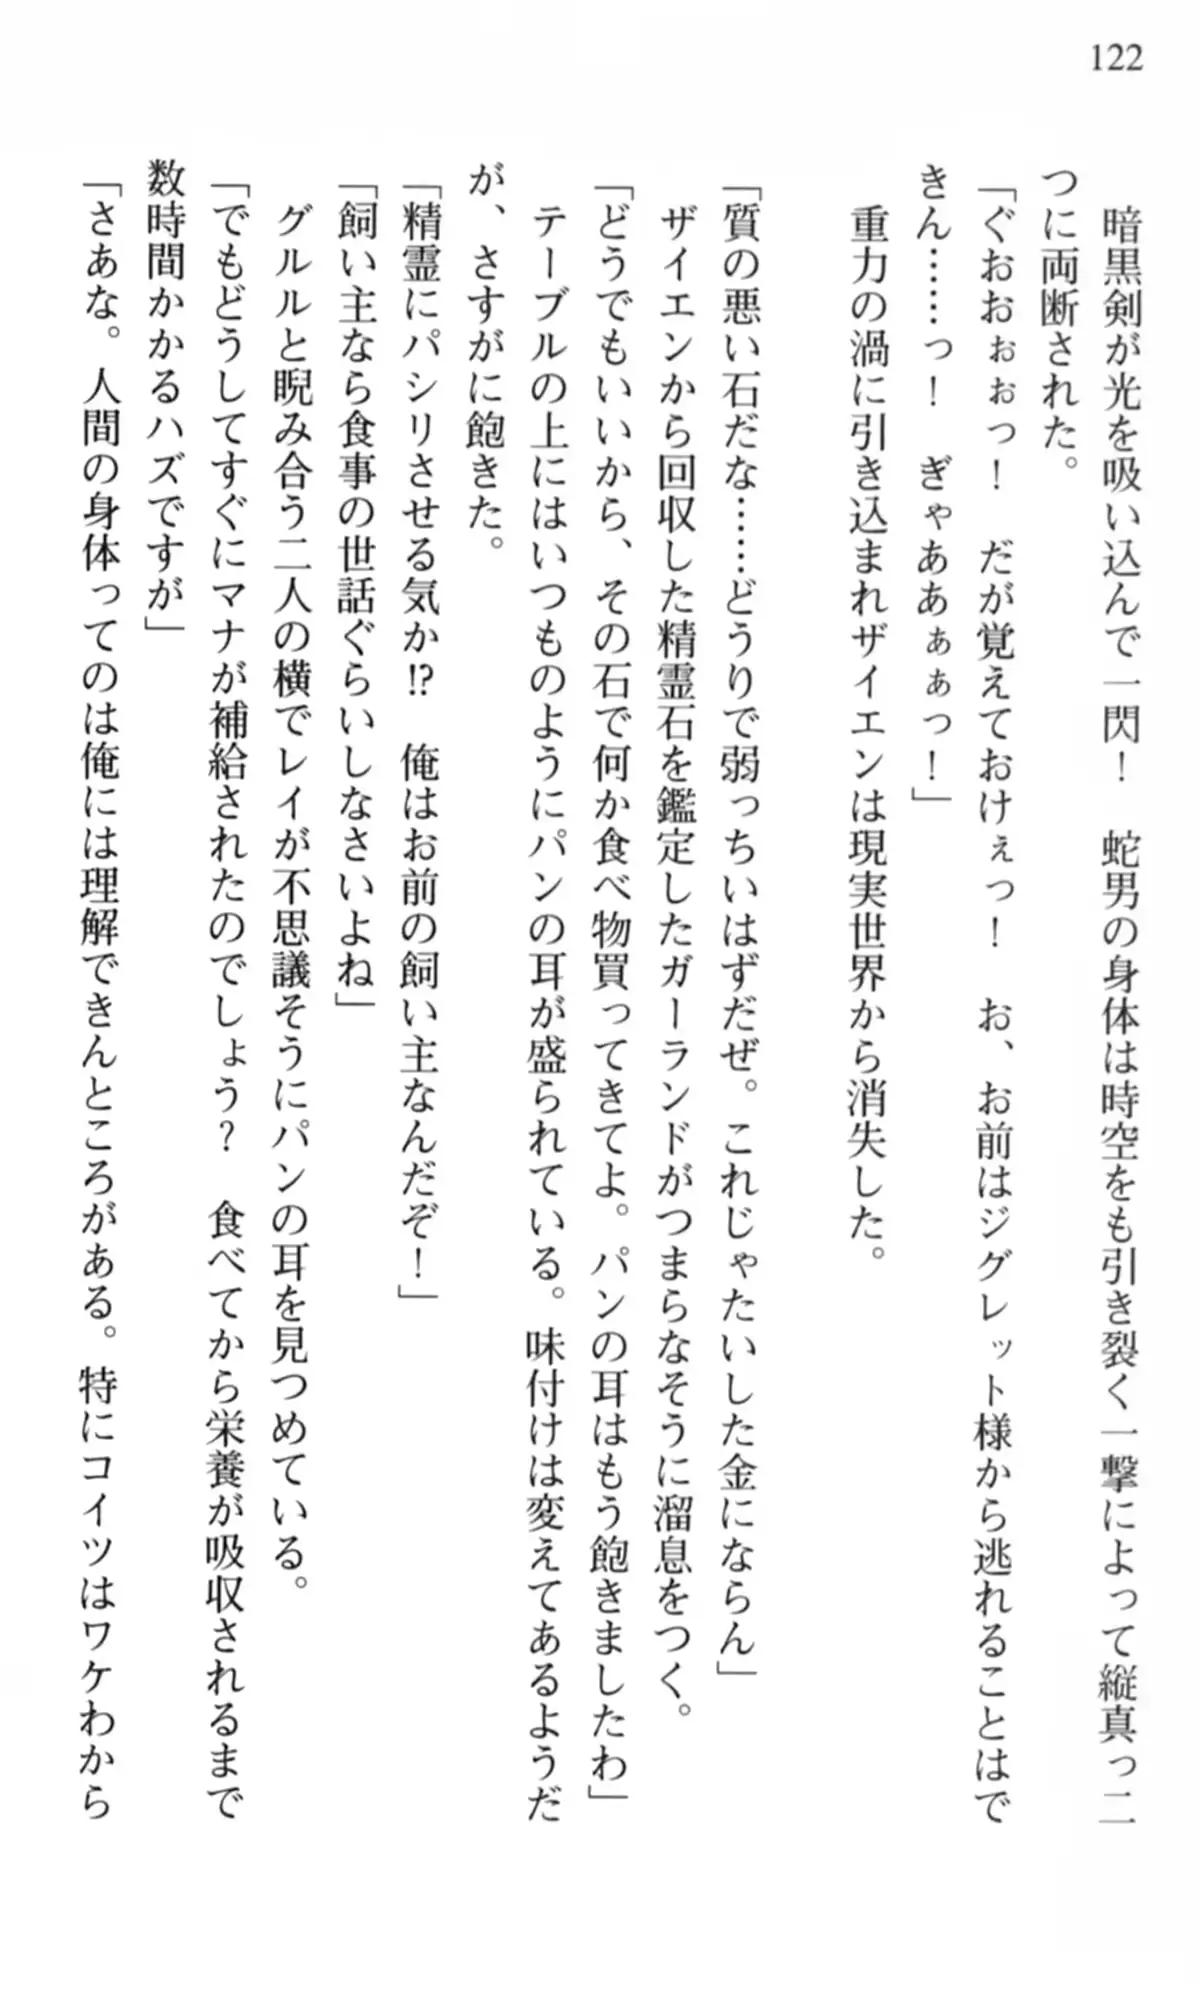 122
　暗黒剣が光を吸い込んで一閃！　蛇男の身体は時空をも引き裂く一撃によって縦真っ二
つに両断された。
「ぐおおぉぉっ！　だが覚えておけぇっ！　お、お前はジグレット様から逃れることはで
きん……っ！　ぎゃああぁぁっ！」
　重力の渦に引き込まれザイエンは現実世界から消失した。
「質の悪い石だな……どうりで弱っちいはずだぜ。これじゃたいした金にならん」
　ザイエンから回収した精霊石を鑑定したガーランドがつまらなそうに溜息をつく。
「どうでもいいから、その石で何か食べ物買ってきてよ。パンの耳はもう飽きましたわ」
　テーブルの上にはいつものようにパンの耳が盛られている。味付けは変えてあるようだ
が、さすがに飽きた。
「精霊にパシリさせる気か⁉　俺はお前の飼い主なんだぞ！」
「飼い主なら食事の世話ぐらいしなさいよね」
　グルルと睨み合う二人の横でレイが不思議そうにパンの耳を見つめている。
「でもどうしてすぐにマナが補給されたのでしょう？　食べてから栄養が吸収されるまで
数時間かかるハズですが」
「さあな。人間の身体ってのは俺には理解できんところがある。特にコイツはワケわから